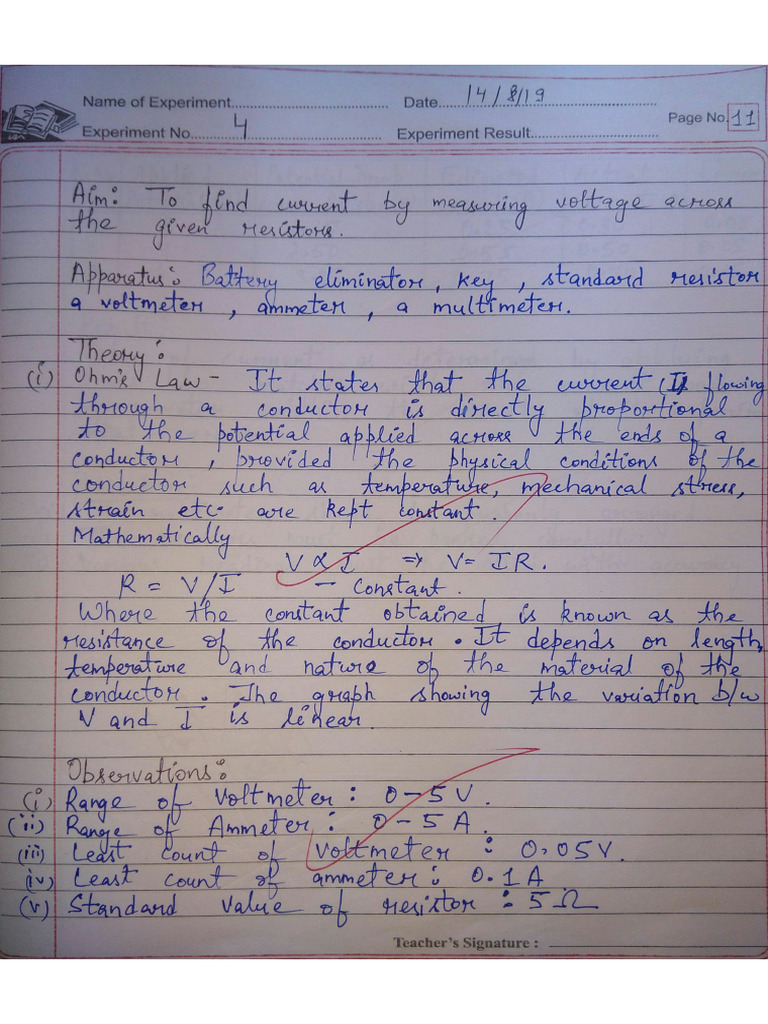 Name of Experiment.......... Date.....14/8/19..........
Page No. 11
Experiment No.....4..... Experiment Result..........
Aim: To find current by measuring voltage across
the given resistors.
Apparatus: Battery eliminator, key, standard resistor
a voltmeter, ammeter, a multimeter.
Theory:
(i) Ohm's Law - It states that the current (I) flowing
through a conductor is directly proportional
to the potential applied across the ends of a
conductor, provided the physical conditions of the
conductor such as temperature, mechanical stress,
strain etc. are kept constant.
Mathematically
V ∝ I ⇒ V = IR.
R = V/I - Constant.
Where the constant obtained is known as the
resistance of the conductor. It depends on length,
temperature and nature of the material of the
conductor. The graph showing the variation b/w
V and I is linear.
Observations:
(i) Range of Voltmeter: 0-5V.
(ii) Range of Ammeter: 0-5A.
(iii) Least count of voltmeter: 0.05V.
(iv) Least count of ammeter: 0.1A
(v) Standard value of resistor: 5Ω
Teacher's Signature: